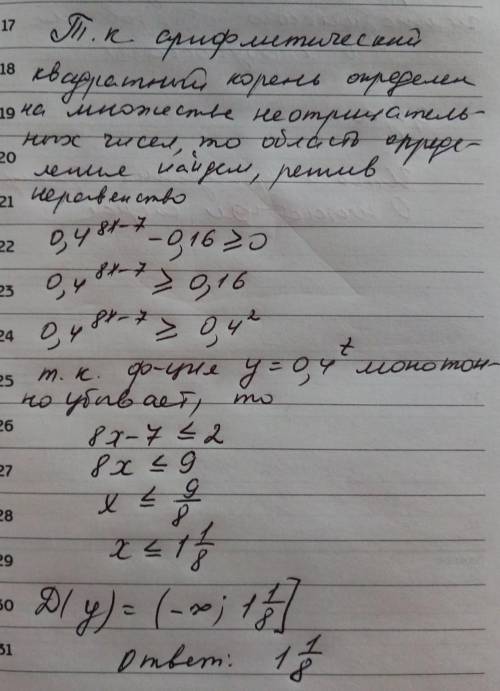 17 Т.к. арифметический
18 квадратный корень определен
19 на множестве неотрицатель-
ных чисел, то область опреде-
20 ления найдем, решив
21 неравенство
22 0,4^{8x-7} - 0,16 ≥ 0
23 0,4^{8x-7} ≥ 0,16
24 0,4^{8x-7} ≥ 0,4^2
25 т.к. ф-ция y = 0,4^t монотон-
но убывает, то
26 8x - 7 ≤ 2
27 8x ≤ 9
28 x ≤ 9/8
29 x ≤ 1 1/8
30 D(y) = (-∞; 1 1/8]
31 Ответ: 1 1/8